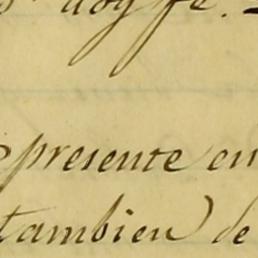 doy fe.
presente en
tambien) de